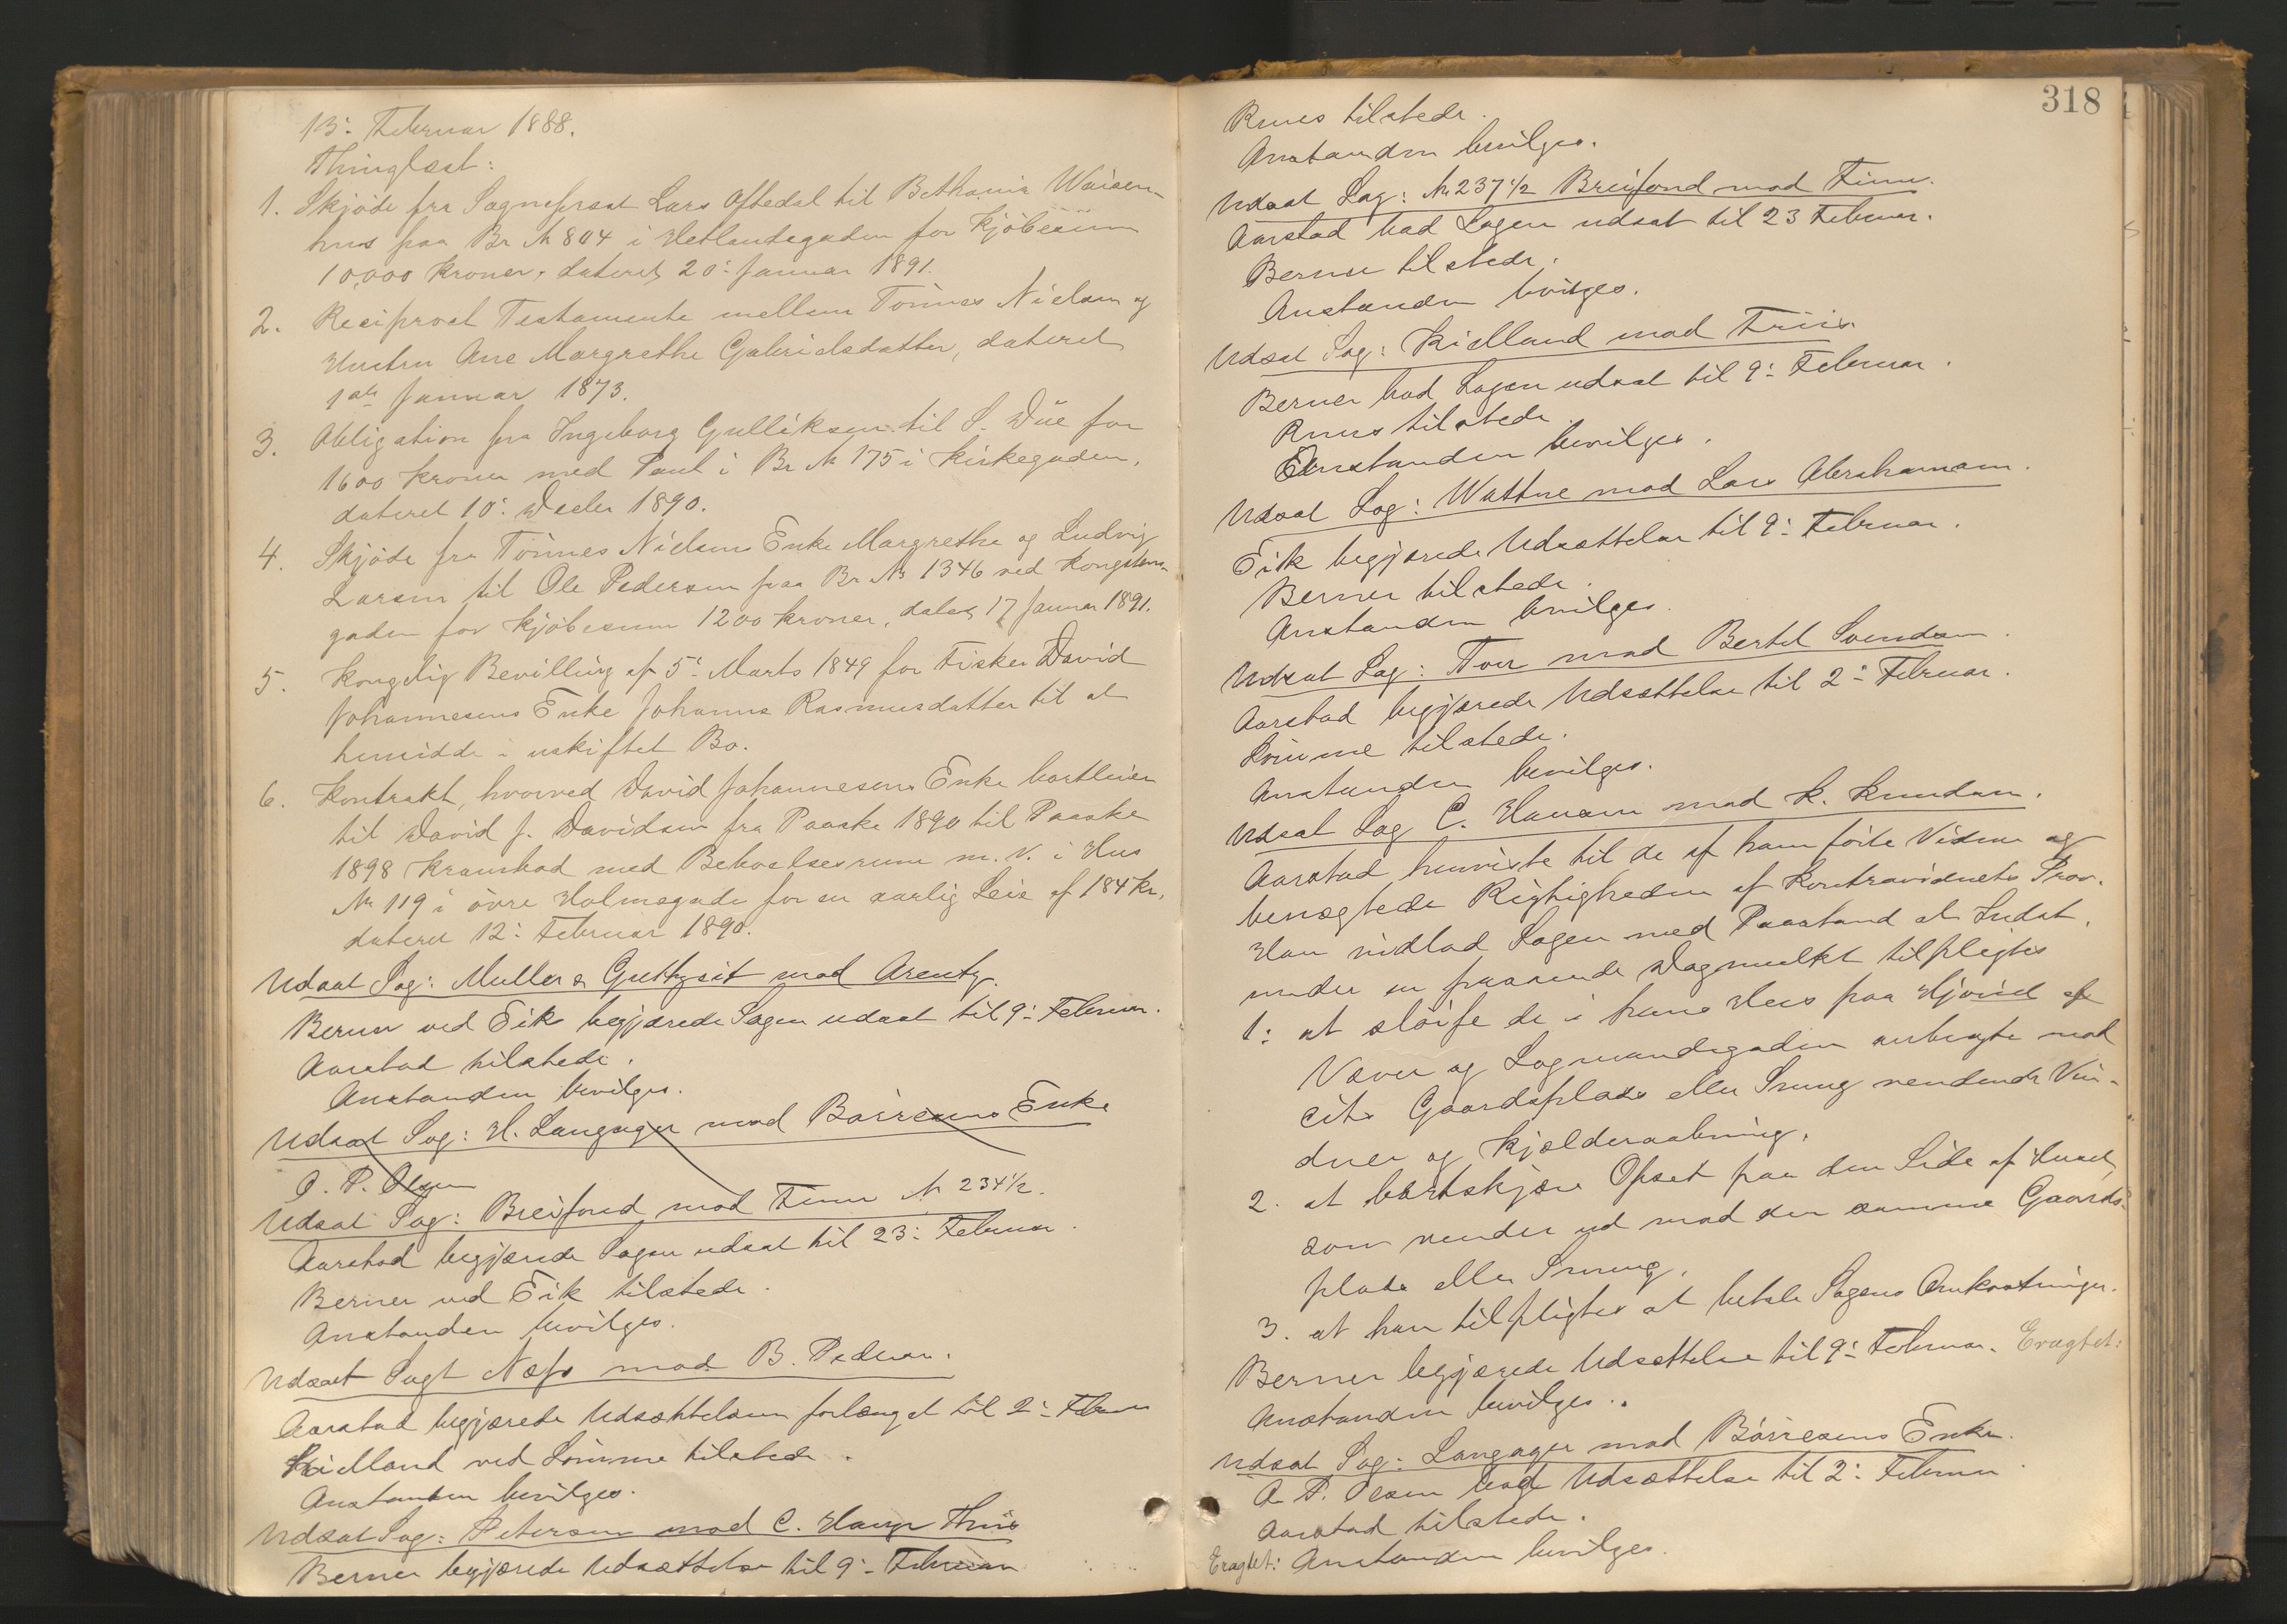 13: Februar 1888.
Thinglæst:
1. Skjöde fra Sogneprest Lars Oftedal til Bethania Waisen-
hus paa Br № 804 i Hetlandsgaden for Kjöbesum
10,000 Kroner, dateret 20: Januar 1891.
2. Reciproct Testamente mellem Tönnes Nielsen og
Hustru Ane Margrethe Gabrielsdatter, dateret
1ste Januar 1873.
3. Obligation fra Ingeborg Gulliksen til S. Due for
1600 Kroner med Pant i Br № 175 i Kirkegaden,
dateret 10: Decbr 1890.
4. Skjöde fra Tönnes Nielsens Enke Margrethe og Ludvig
Larsen til Ole Pedersen paa Br № 1346 ved Kongstens-
gaden for Kjöbesum 1200 Kroner, dateret 17 Januar 1891.
5. Kongelig Bevilling af 5: Marts 1849 for Fisker David
Johannesens Enke Johanne Rasmusdatter til at
hensidde i uskiftet Bo.
6. Kontrakt, hvorved David Johannesens Enke bortleier
til David J. Davidsen fra Paaske 1890 til Paaske
1898 Krambod med Bekvelsesrum m. v. i Hus
№ 119 i övre Holmegade for en aarlig Leie af 184 Kr,
dateret 12: Februar 1890.
Udsat Sag: Muller & mod Arentz.
Berner ved Eik begjærede Sagen udsat til 9: Februar.
Aarstad tilstede.
Anstanden bevilges.
Udsat Sag: H. Langager mod Börresens Enke
O. P. Olsen
Udsat Sag: Breifond mod Finn № 234½.
Aarstad begjærede Sagen udsat til 23: Februar.
Berner ved Eik tilstede.
Anstanden bevilges.
Udsat Sag: Næss mod B. Pedersen.
Aarstad begjærede Udsættelsen forlænget til 2: Februar
Kielland ved Lömme tilstede.
Anstanden bevilges.
Udsat Sag: Petersen mod C. Hauge Thiis
Berner begjærede Udsættelse til 9: Februar
318
Rnus tilstede.
Anstanden bevilges.
Udsat Sag: № 237½ Breifond mod Finn.
Aarstad bad Sagen udsat til 23 Februar.
Berner tilstede.
Anstanden bevilges.
Udsat Sag: Kielland mod Friis.
Berner bad Sagen udsat til 9: Februar.
Rnus tilstede
Anstanden bevilges.
Udsat Sag: Wattne mod Lars Abrahamsen.
Eik begjærede Udsættelse til 9: Februar.
Berner tilstede.
Anstanden bevilges.
Udsat Sag: Tou mod Bertel Svendsen.
Aarstad begjærede Udsættelse til 2: Februar.
Lömme tilstede.
Anstanden bevilges.
Udsat Sag C. Hansen mod K. Knudsen.
Aarstad henviste til de af ham förte Vidner og
benægtede Rigtigheden af Kontravidnets Prov.
Han indlod Sagen med Paastand at Indst.
under en passende Dagmulkt tilpligtes
1: at slöife de i hans Hus paa Hjörnet af
Væver og Lagmandsgaden anbragte mod
Cit. Gaardsplads eller Smug vendende Vin-
duer og Kjælderaabning.
2. at bortskjære Opset paa den Side af Huset,
som vender ud mod den samme Gaards-
plads eller Smug.
3. at han tilpligtes at betale Sagens Omkostninger.
Berner begjærede Udsættelse til 9: Februar. Eragtet:
Anstanden bevilges.
Udsat Sag: Langager mod Börresens Enke.
O. P. Olsen bad Udsættelse til 2: Februar
Aarstad tilstede.
Eragtet: Anstanden bevilges.